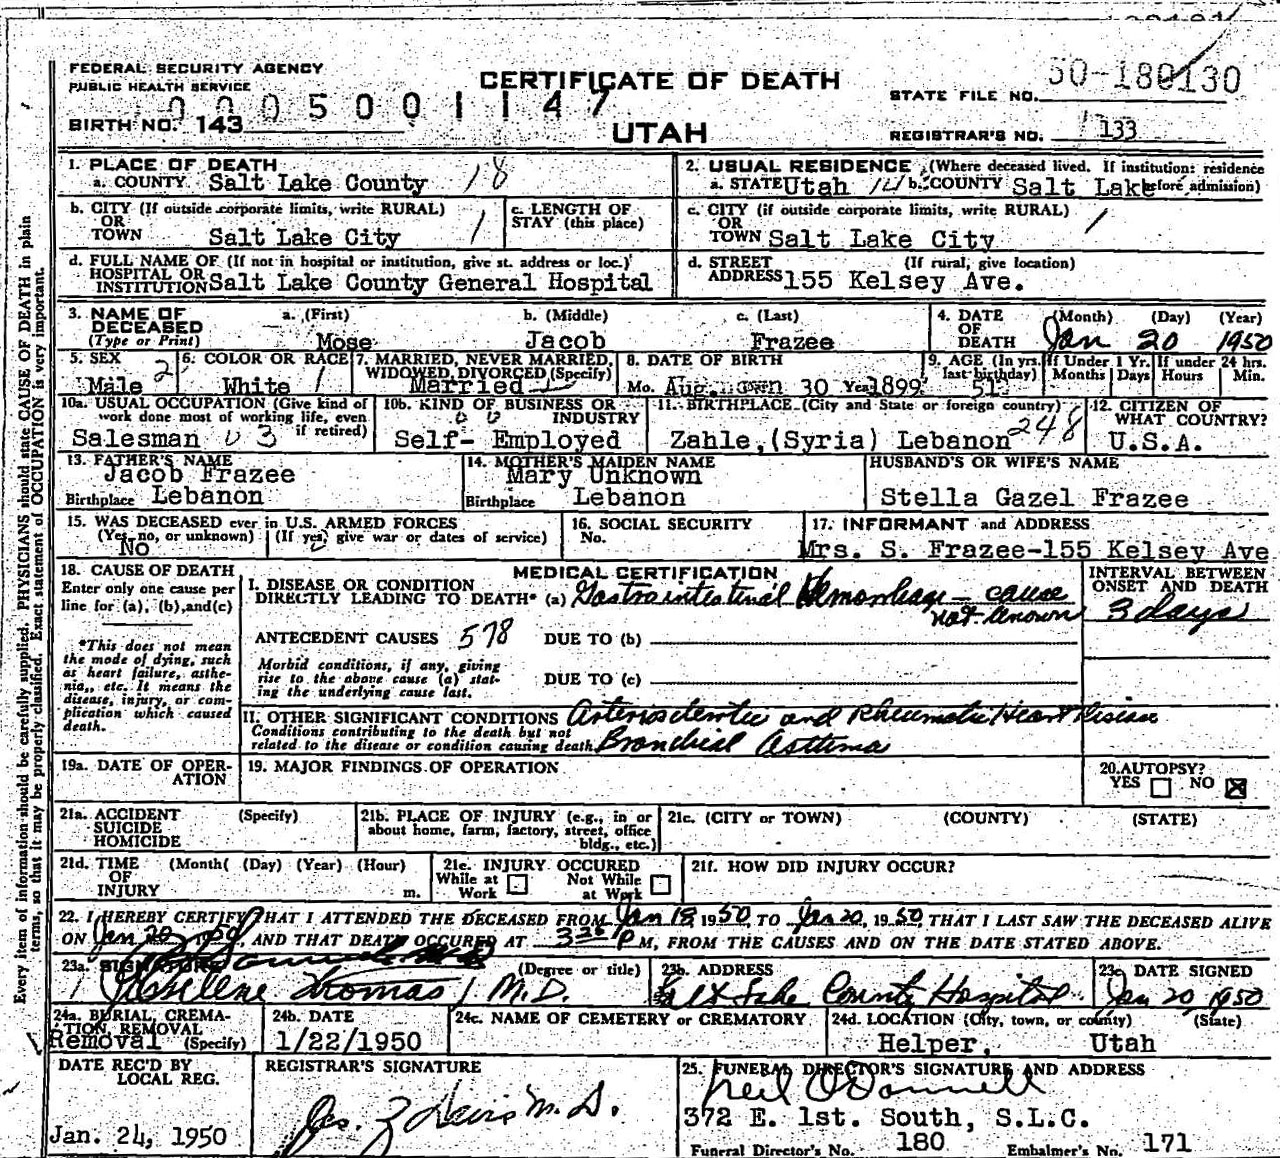 FEDERAL SECURITY AGENCY
PUBLIC HEALTH SERVICE
CERTIFICATE OF DEATH
50-180130
STATE FILE NO.
0005001147
BIRTH NO. 143
UTAH
REGISTRAR'S NO. 133
1. PLACE OF DEATH
a. COUNTY Salt Lake County 18
2. USUAL RESIDENCE (Where deceased lived. If institution: residence before admission)
a. STATE Utah b. COUNTY Salt Lake
b. CITY (If outside corporate limits, write RURAL)
OR
TOWN Salt Lake City 1
c. LENGTH OF
STAY (this place)
c. CITY (if outside corporate limits, write RURAL)
OR
TOWN Salt Lake City 1
d. FULL NAME OF (If not in hospital or institution, give st. address or loc.)
HOSPITAL OR
INSTITUTION Salt Lake County General Hospital
d. STREET (If rural, give location)
ADDRESS 155 Kelsey Ave.
3. NAME OF
DECEASED
(Type or Print)
a. (First) b. (Middle) c. (Last)
Mose Jacob Frazee
4. DATE
OF
DEATH
(Month) (Day) (Year)
Jan 20 1950
5. SEX
Male 2
6. COLOR OR RACE
White 1
7. MARRIED, NEVER MARRIED,
WIDOWED, DIVORCED (Specify)
Married
8. DATE OF BIRTH
Mo. Aug. 30 Year 1899
9. AGE (In yrs.
last birthday)
51
If Under 1 Yr.
Months Days
If under 24 hrs.
Hours Min.
10a. USUAL OCCUPATION (Give kind of
work done most of working life, even
if retired)
Salesman
10b. KIND OF BUSINESS OR
INDUSTRY
Self- Employed
11. BIRTHPLACE (City and State or foreign country)
Zahle, (Syria) Lebanon 248
12. CITIZEN OF
WHAT COUNTRY?
U.S.A.
13. FATHER'S NAME
Jacob Frazee
Birthplace Lebanon
14. MOTHER'S MAIDEN NAME
Mary Unknown
Birthplace Lebanon
HUSBAND'S OR WIFE'S NAME
Stella Gazel Frazee
15. WAS DECEASED ever in U.S. ARMED FORCES
(Yes, no, or unknown) (If yes, give war or dates of service)
No
16. SOCIAL SECURITY
No.
17. INFORMANT and ADDRESS
Mrs. S. Frazee-155 Kelsey Ave
18. CAUSE OF DEATH
Enter only one cause per
line for (a), (b), and (c)
*This does not mean
the mode of dying, such
as heart failure, asthe-
nia, etc. It means the
disease, injury, or com-
plication which caused
death.
MEDICAL CERTIFICATION
I. DISEASE OR CONDITION
DIRECTLY LEADING TO DEATH* (a) Gastrointestinal Hemorrhage - cause
not known
INTERVAL BETWEEN
ONSET AND DEATH
3 days
ANTECEDENT CAUSES 578 DUE TO (b)
Morbid conditions, if any, giving
rise to the above cause (a) stat-
ing the underlying cause last.
DUE TO (c)
II. OTHER SIGNIFICANT CONDITIONS
Conditions contributing to the death but not
related to the disease or condition causing death.
Arteriosclerotic and Rheumatic Heart Disease
Bronchial Asthma
19a. DATE OF OPER-
ATION
19. MAJOR FINDINGS OF OPERATION
20. AUTOPSY?
YES NO
21a. ACCIDENT (Specify)
SUICIDE
HOMICIDE
21b. PLACE OF INJURY (e.g., in or
about home, farm, factory, street, office
bldg., etc.)
21c. (CITY or TOWN) (COUNTY) (STATE)
21d. TIME (Month( (Day) (Year) (Hour)
OF
INJURY m.
21e. INJURY OCCURED
While at Work Not While at Work
21f. HOW DID INJURY OCCUR?
22. I HEREBY CERTIFY THAT I ATTENDED THE DECEASED FROM Jan 18, 1950, TO Jan 20, 1950, THAT I LAST SAW THE DECEASED ALIVE
ON Jan 20, 1950, AND THAT DEATH OCCURED AT P M, FROM THE CAUSES AND ON THE DATE STATED ABOVE.
23a. SIGNATURE (Degree or title)
Thomas, M.D.
23b. ADDRESS
Salt Lake County Hospital
23c. DATE SIGNED
Jan 20 1950
24a. BURIAL, CREMA-
TION, REMOVAL
Removal (Specify)
24b. DATE
1/22/1950
24c. NAME OF CEMETERY or CREMATORY
24d. LOCATION (City, town, or county) (State)
Helper, Utah
DATE REC'D BY
LOCAL REG.
Jan. 24, 1950
REGISTRAR'S SIGNATURE
M.D.
25. FUNERAL DIRECTOR'S SIGNATURE AND ADDRESS
Neil O'Donnell
372 E. 1st. South, S.L.C.
Funeral Director's No. 180 Embalmer's No. 171
Every item of information should be carefully supplied. PHYSICIANS should state CAUSE OF DEATH in plain
terms, so that it may be properly classified. Exact statement of OCCUPATION is very important.